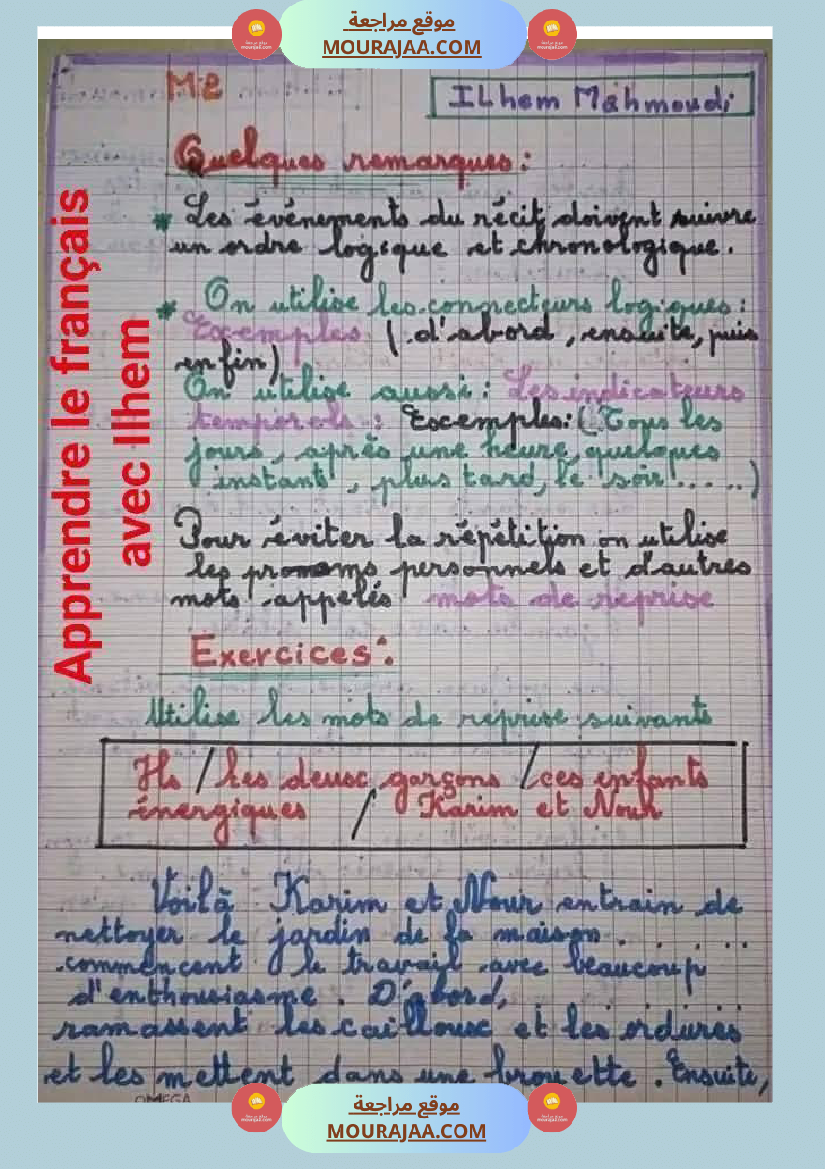 موقع مراجعة
MOURAJAA.COM
M.2
Ilhem Mahmoudi
Quelques remarques :
* Les événements du récit doivent suivre
un ordre logique et chronologique.
* On utilise les connecteurs logiques :
Exemples ( d'abord, ensuite, puis
enfin)
On utilise aussi : Les indicateurs
temporels : Exemples : ( Tous les
jours, après une heure, quelques
instant, plus tard, le soir .....)
Pour éviter la répétition on utilise
les pronoms personnels et d'autres
mots appelés mots de reprise
Exercices :
Utilise les mots de reprise suivants
Ils / Les deux garçons / ces enfants
énergiques / Karim et Nour
Voilà Karim et Nour entrain de
nettoyer le jardin de la maison . . . . .
commencent le travail avec beaucoup
d'enthousiasme. D'abord,
ramassent les cailloux et les ordures
et les mettent dans une brouette. Ensuite,
OMEGA
Apprendre le français
avec Ilhem
موقع مراجعة
MOURAJAA.COM